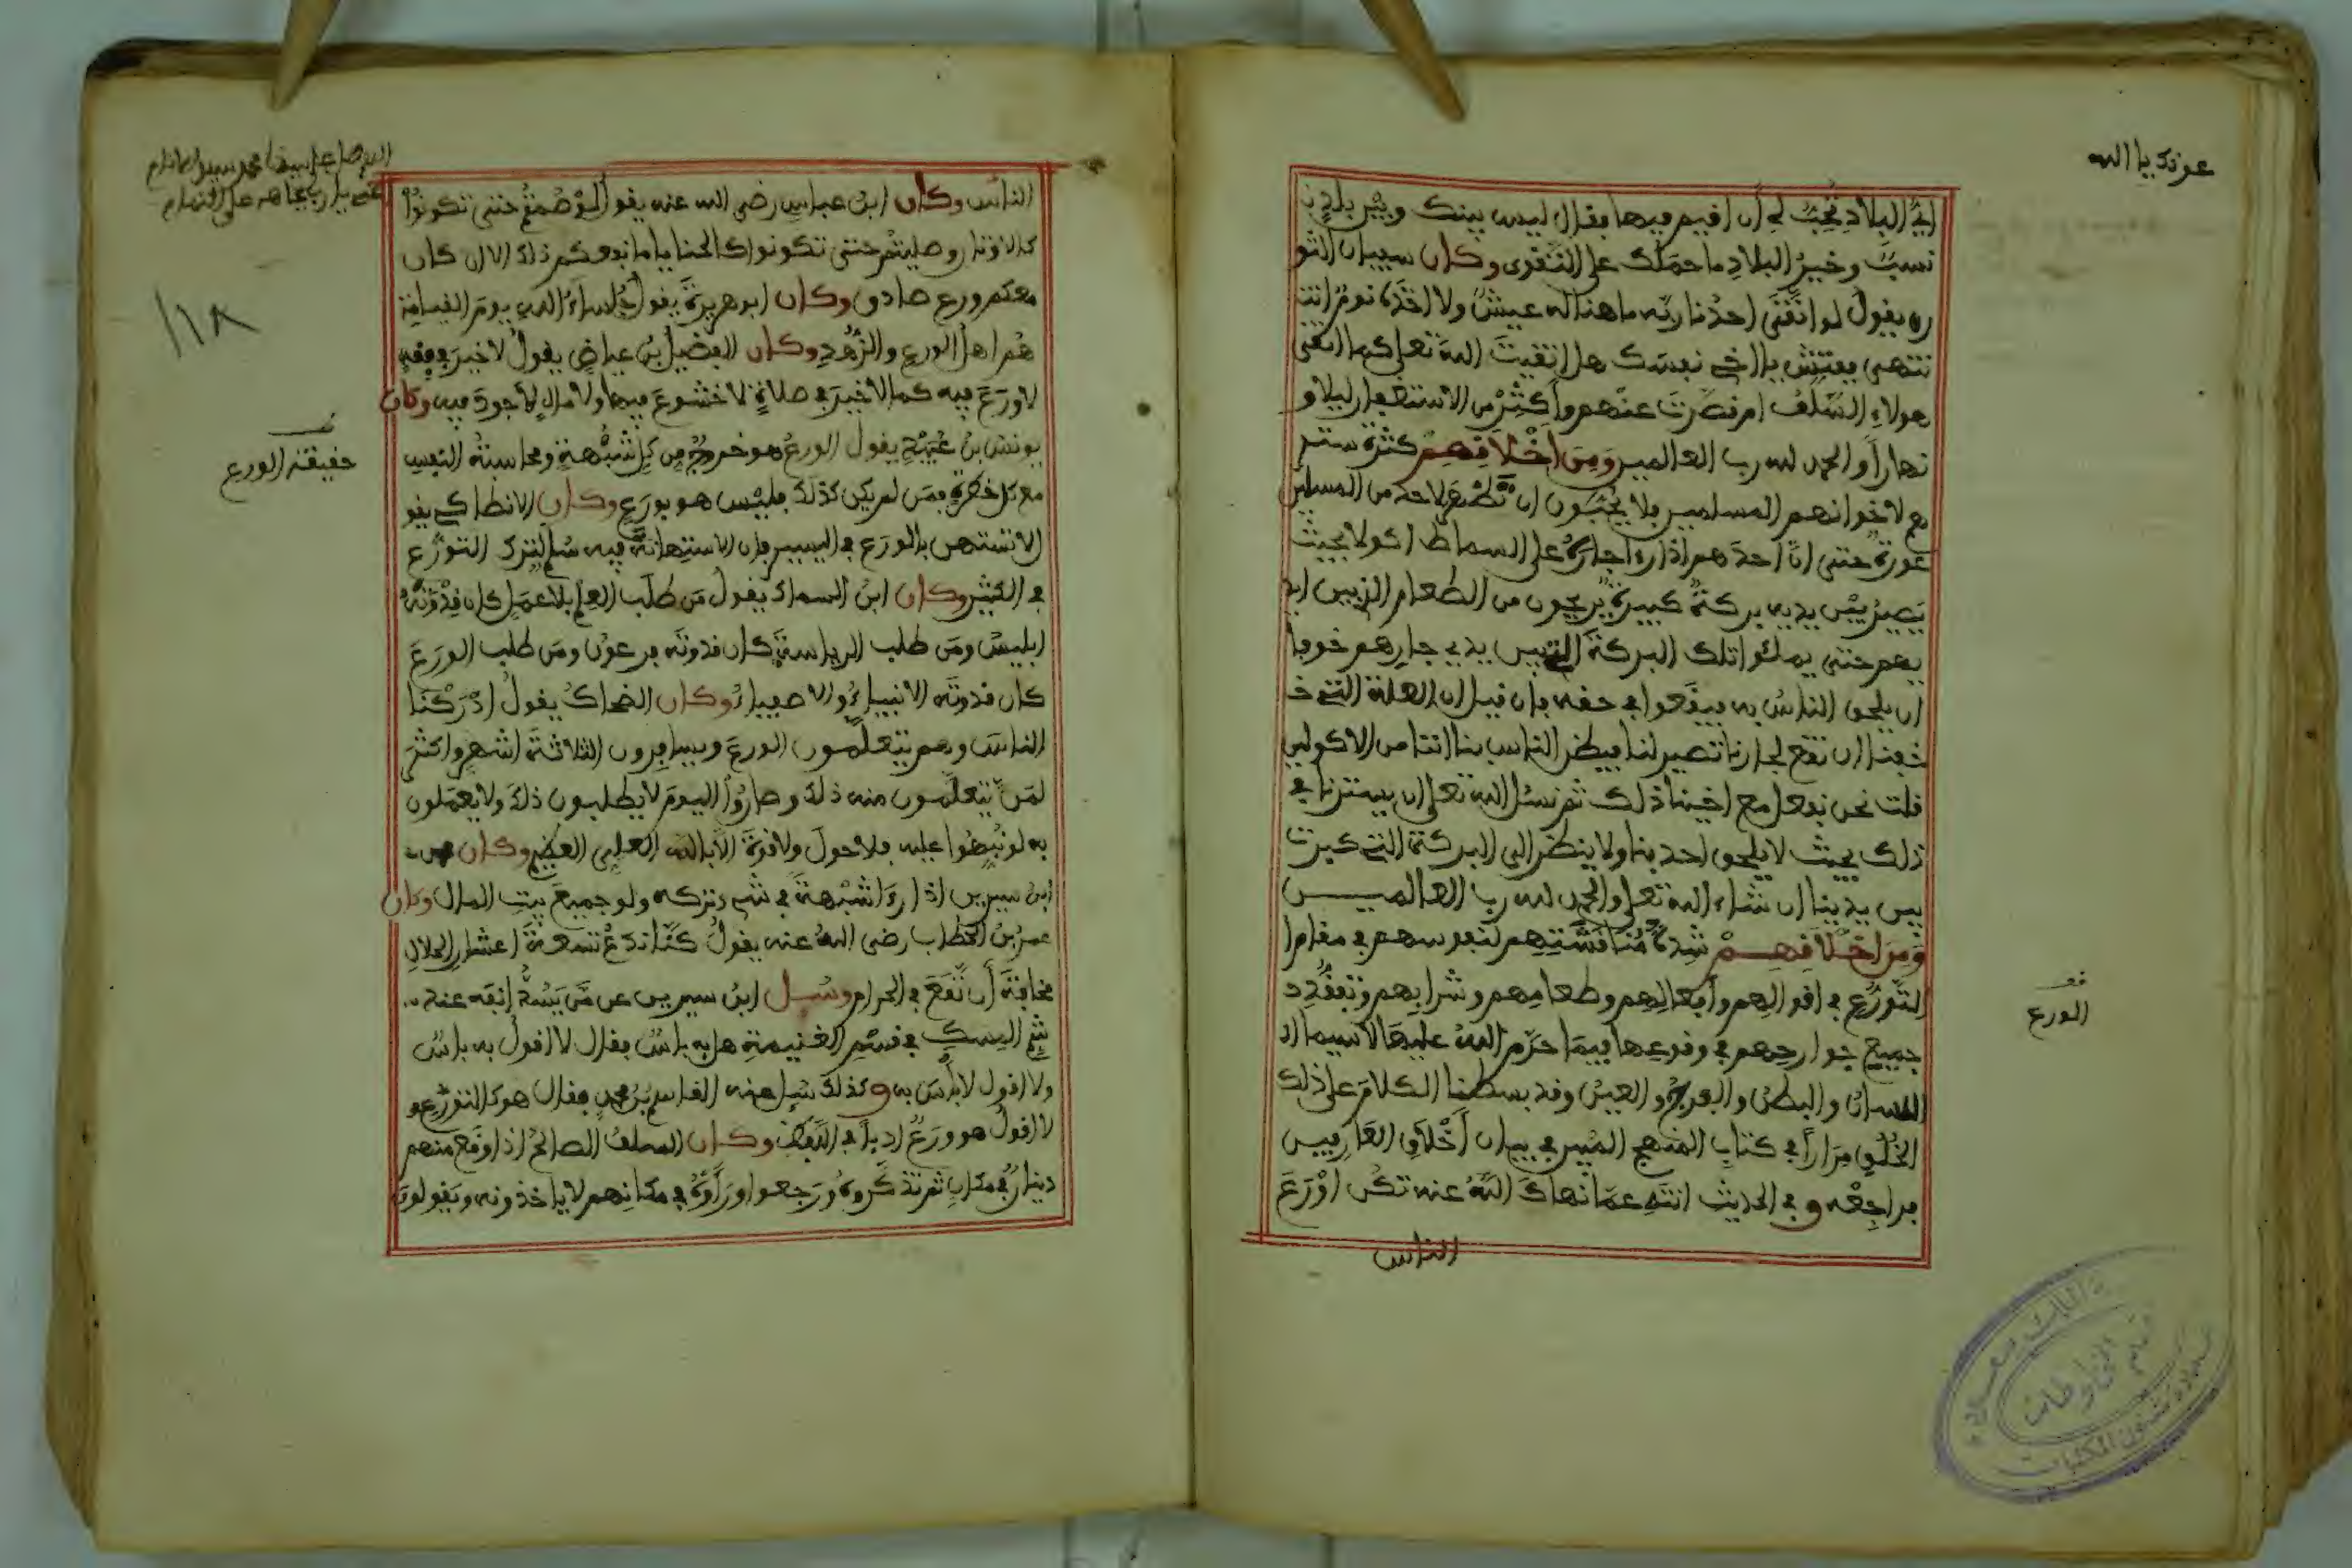 عونك يا الله
اي البلاد تحب لي أن افيم فيها بفال ليس بينك وبين بلد
نسب وخير البلاد ما حملك على التفوى وكان سبيان الثو
ري يفول لو اتفى احدنا ربه ما هنا له عيش ولا اخذه نوم انت
تنتهى ففتش يا اخي نفسك هل اتفيت الله تعلى كما اتفى
هولاء السلف ام فصرت عنهم وأكثر من الاستغفار ليلا و
نهارا والحمد لله رب العالمين وَمِنَ اخْلَافِهِمْ كثرة ستر
هم لاخوانهم المسلمين فلا يحبون ان تظهر لاحد من المسلمين
عورة حتى ان احدهم اذا رءا جاره على السماط اكولا بحيث
يصير بين يديه بركة كبيرة يرمون من الطعام الذي بين ايد
يهم حتى يملئوا تلك البركة التي بين يدي جارهم خوفا
ان يلحق الناس به فيفعوا في حفه فإن فيل ان العلة التي خـ
ـفنا ان تفع لجارنا تصير لنا فيظن الناس بنا اننا من الاكولين
فلت نحن نفعل مع اخينا ذلك ثم نسئل الله تعلى ان يسترنا في
ذلك بحيث لا يلحق احد بنا ولا ينظر الى البركة التي كبرت
بين يدينا ان شاء الله تعلى والحمد لله رب العالمين
وَمِنَ اخْلَافِهِمْ شدة مُنَافَشَتِهِم لنفوسهم في مفام ا
لتورع في افوالهم وأفعالهم وطعامهم وشرابهم وتففد
جميع جوارحهم في وفوعها فيما حرم الله عليها لا سيما ا
للسان والبطن والفرج والعين وفد بسطنا الكلام على ذلك
الخلق مرارا في كتاب المنهج المبين في بيان أخْلَاقِ العَارِفين
فراجعه وفي الحديث انته عما نهاك الله عنه تكن اوْرَعَ
الناس
فف
الورع
فسم المخطوطات
عمادة شئون المكتبات
على سيدنا محمد
١١٨
الناس وكان ابن عباس رضي الله عنه يفول لو صمتم حتى تكونوا
كالاوتار وصليتم حتى تكونوا كالحنايا ما نفعكم ذلك الا ان كان
معكم ورع صادق وكان ابو هريرة يفول جُلساءُ الله يوم الفيامة
هُم اهل الورع والزُّهدِ وكان الفضيل بن عياض يفول لا خير في ففه
لا وَرَعَ فيه كما لا خير في صلاة لا خشوع فيها ولا مال لا جود فيه وكان
يونس بن عُبَيْدٍ يفول الورع هو خروج من كل شُبْهة ومحاسبة النفس
مع كل خطرة فمن لم يكن كذلك فليس هو بورع وكان الانطاكي يفو
ل لا تستهن بالورع في اليسير فإن الاستهانة فيه سلم لترك التورع
في الكثير وكان ابن السماك يفول من طلب العلم بلا عمل كان فِدْوَتُهُ
ابليس ومن طلب الرياسة كان فدوته فرعون ومن طلب الورع
كان فدوته الانبياءُ والاصفياءُ وكان الضحاك يفول ادْرَكْنَا
الناس وهم يتعلّمون الورع ويسافرون الثلاثة اشهر واكثر
لمن يتعلّمون منه ذلك وصاروا اليوم لا يطلبون ذلك ولا يعملون
به لو نُبِّهُوا عليه فلا حول ولا فوة الا بالله العلي العظيم وكان
ابن سيرين اذا رءا شُبْهة في شيء تركه ولو جميع بيت المال وكان
عمر بن الخطاب رضي الله عنه يفول كنا ندع تسعة اعشار الحلال
مخافة أن نَفَعَ في الحرام وسُيل ابن سيرين عن من يَسُدُّ انفه عند
شم المسك في فسم الغنيمة هل به باس ففال لا افول به باس
ولا افول لا بأس به وكذلك سُيل عنه الفاسم بن محمد ففال هو كالتورع و
لا افول هو وَرَعٌ ادبا في اللفظ وكان السلف الصالح اذا وفع منهم
دينار في مكان ثم تذكروه ورجعوا ورأوْهُ في مكانهم لا ياخذونه ويفولون
فف
حفيفة الورع